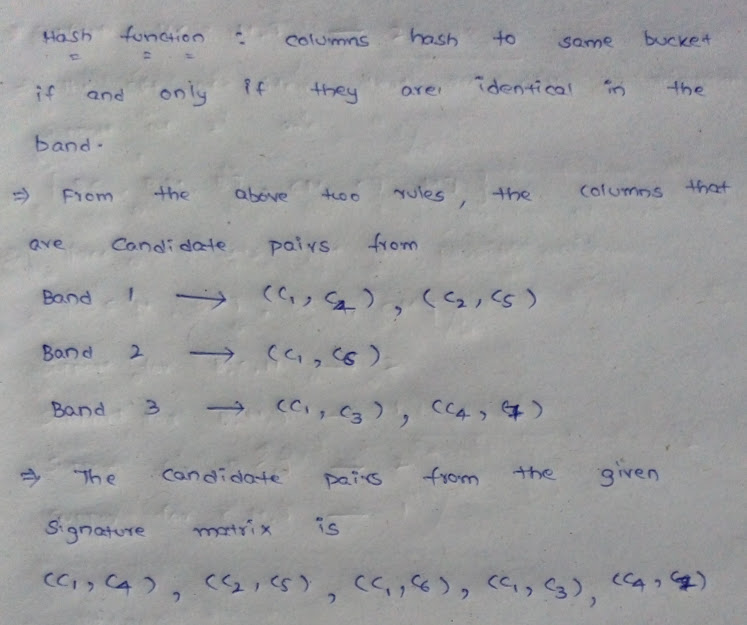 Hash function : columns hash to same bucket
if and only if they are identical in the
band.
⇒ From the above two rules, the columns that
are Candidate pairs from
Band 1 → (C1, C4), (C2, C5)
Band 2 → (C1, C6)
Band 3 → (C1, C3), (C4, C7)
⇒ The Candidate pairs from the given
Signature matrix is
(C1, C4), (C2, C5), (C1, C6), (C1, C3), (C4, C7)